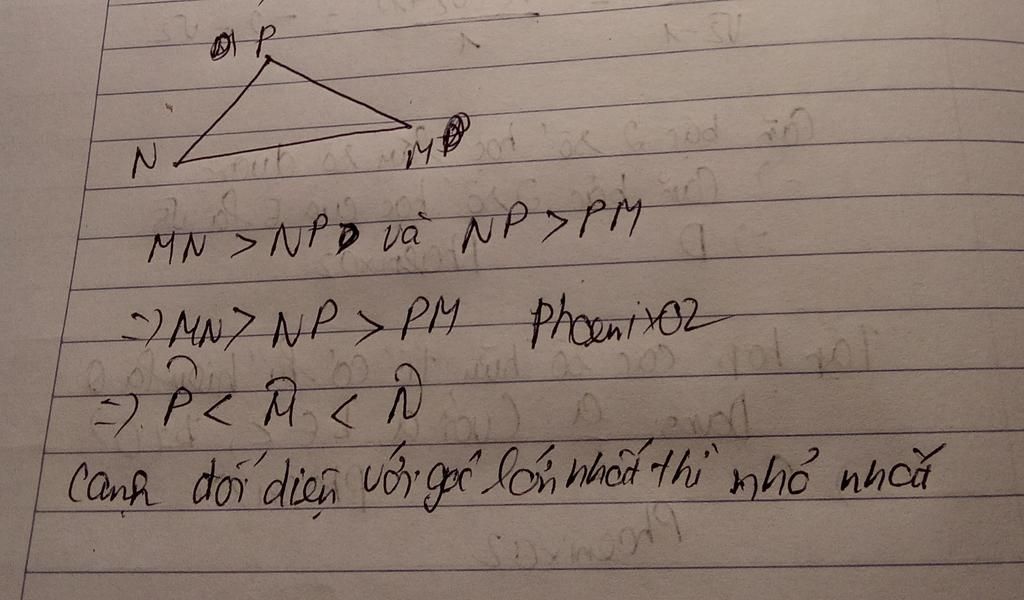 P
N
M
MN > NP và NP > PM
=) MN > NP > PM Phoenix02
=) P̂ < M̂ < N̂
Cạnh đối diện với góc lớn nhất thì nhỏ nhất